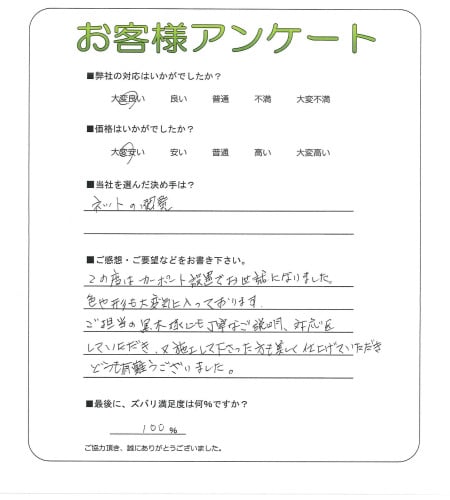 お客様アンケート
■弊社の対応はいかがでしたか？
大変良い 良い 普通 不満 大変不満
■価格はいかがでしたか？
大変安い 安い 普通 高い 大変高い
■当社を選んだ決め手は？
ネットの閲覧
■ご感想・ご要望などをお書き下さい。
この度はカーポート設置でお世話になりました。
色や形も大変気に入っております。
ご担当の黒木様にも丁寧なご説明、対応を
していただき、又施工して下さった方も美しく仕上げていただき
どうも有難うございました。
■最後に、ズバリ満足度は何％ですか？
100％
ご協力頂き、誠にありがとうございました。